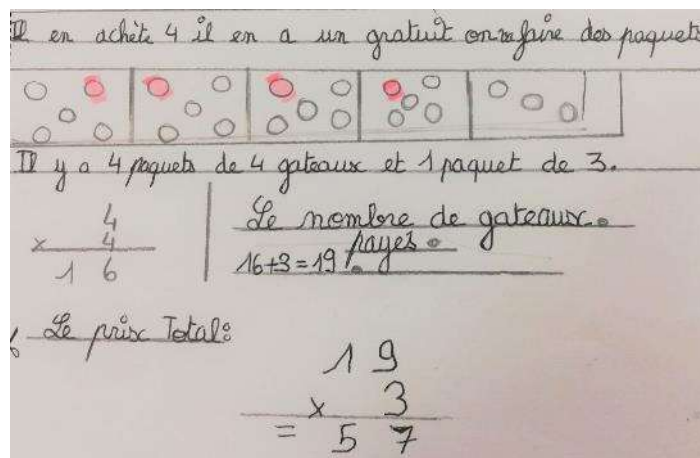 Il en achète 4 il en a un gratuit on va faire des paquets
Il y a 4 paquets de 4 gateaux et 1 paquet de 3.
4
× 4
1 6
Le nombre de gateaux.
payés.
16+3=19
Le prix Total:
1 9
× 3
= 5 7